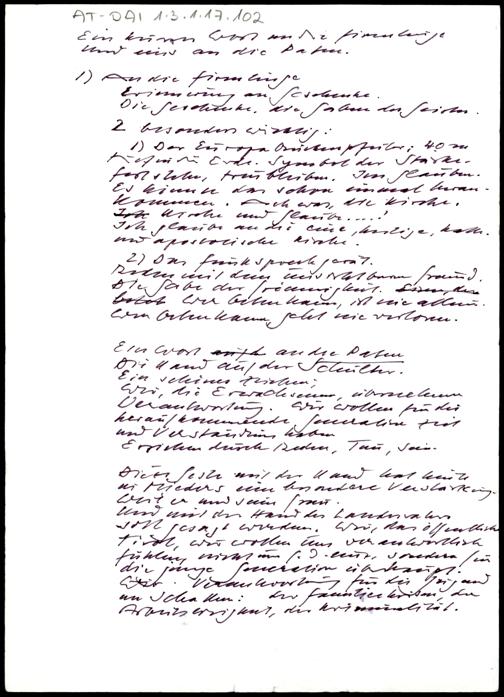 AT-DAI 1.3.1.17.102
Ein kurzes Wort an die Firmlinge
und eins an die Paten.
1) An die Firmlinge
Erinnerung an Geschenke.
Die Geschenke, die Gaben des Geistes.
2 besonders wichtig:
1) Der Europabrückenpfeiler; 40 m
tief in die Erde. Symbol der Stärke.
fest stehn, treu bleiben. Im Glauben.
Es könnte das schon einmal heran-
kommen. Ach was, die Kirche.
Kirche und Glaube....!
Ich glaube an die eine, heilige, kath.
und apostolische Kirche.
2) Das Funksprechgerät.
Reden mit dem unsichtbaren Freund.
Die Gabe der Frömmigkeit.
Wer beten kann, ist nie allein.
Wer beten kann geht nie verloren.
Ein Wort an die Paten
Die Hand auf der Schulter.
Ein schönes Zeichen;
Wir, die Erwachsenen, übernehmen
Verantwortung. Wir wollen für die
heraufkommende Generation Zeit
und Verständnis haben
Erziehen durch Reden, Tun, Sein.
Diese Geste mit der Hand hat heute
in Mieders eine besondere Verstärkung.
Weil er und seine Frau.
Und mit der Hand des Landesvaters
soll gesagt werden. Wir, das öffentliche
Tirol, wir wollen uns verantwortlich
fühlen nicht nur f. d. eine, sondern für
die junge Generation überhaupt.
Verantwortung für die Jugend
im Schatten: der Familienkrisen, der
Arbeitslosigkeit, der Kriminalität.